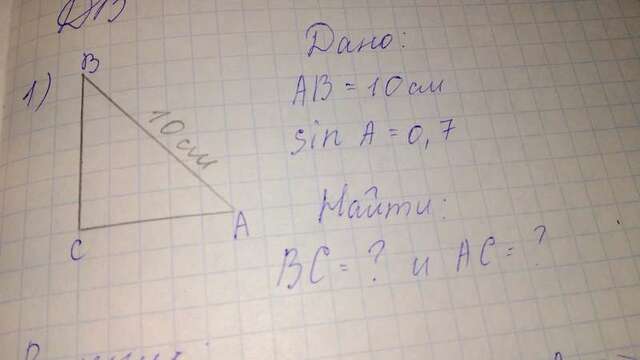 1)
B
10 см
C
A
Дано:
AB = 10 см
sin A = 0,7
Найти:
BC = ? и AC = ?